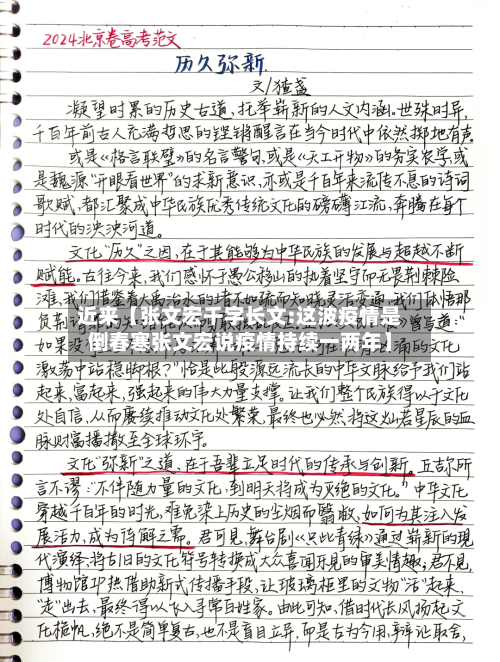 2024北京卷高考范文
历久弥新
文/猹盏
凝望时累的历史古道,托举崭新的人文内涵。世殊时异,
千百年前古人充满哲思的铿锵醒言在当今时代中依然掷地有声。
或是《格言联璧》的名言警句,或是《天工开物》的务实农学,或
是魏源“开眼看世界”的求新意识,亦或是千百年来流传不息的诗词
歌赋,都汇聚成中华民族优秀传统文化的磅礴江流,奔腾在每个
时代的泱泱河道。
文化“历久”之因,在于其能够为中华民族的发展与超越不断
赋能。古往今来,我们感怀于愚公移山的执着坚守而无畏荆棘险
滩,我们借鉴着大禹治水的堵不如疏而知晓灵活变通,我们体悟
近来【张文宏千字长文:这波疫情是
倒春寒张文宏说疫情持续一两年】
负荆
曾道:“
如果没
涌的文化
激荡中站稳脚根?”恰是比般源远流长的中华文脉给予我们站
起来,富起来,强起来的伟大力量支撑。让我们整个民族得以于文化
处自信,从而赓续推动文化处繁荣,最终也必然将这灿若星辰的血
脉财富播撒至全球环宇。
文化“弥新”之道,在于吾辈立足时代的传承与创新。丘吉尔所
言不谬:“不伴随力量的文化,到明天将成为灭绝的文化。”中华文化
穿越千百年的时光,难免染上历史的尘烟而翳敝,如何为其注入发
展活力,成为待解之需。君可见,舞台剧《只此青绿》通过崭新的现
代演绎,将古旧的文化符号转换成大众喜闻乐见的审美情趣;君不见,
博物馆IP热借助新式传播手段,让玻璃柜里的文物“活”起来,
“走”出去,最终得以飞入寻常百姓家。由此可知,借时代长风扬起文
化桅帆,绝不是简单复古,也不是盲目立异,而是古为今用,辩证取舍,